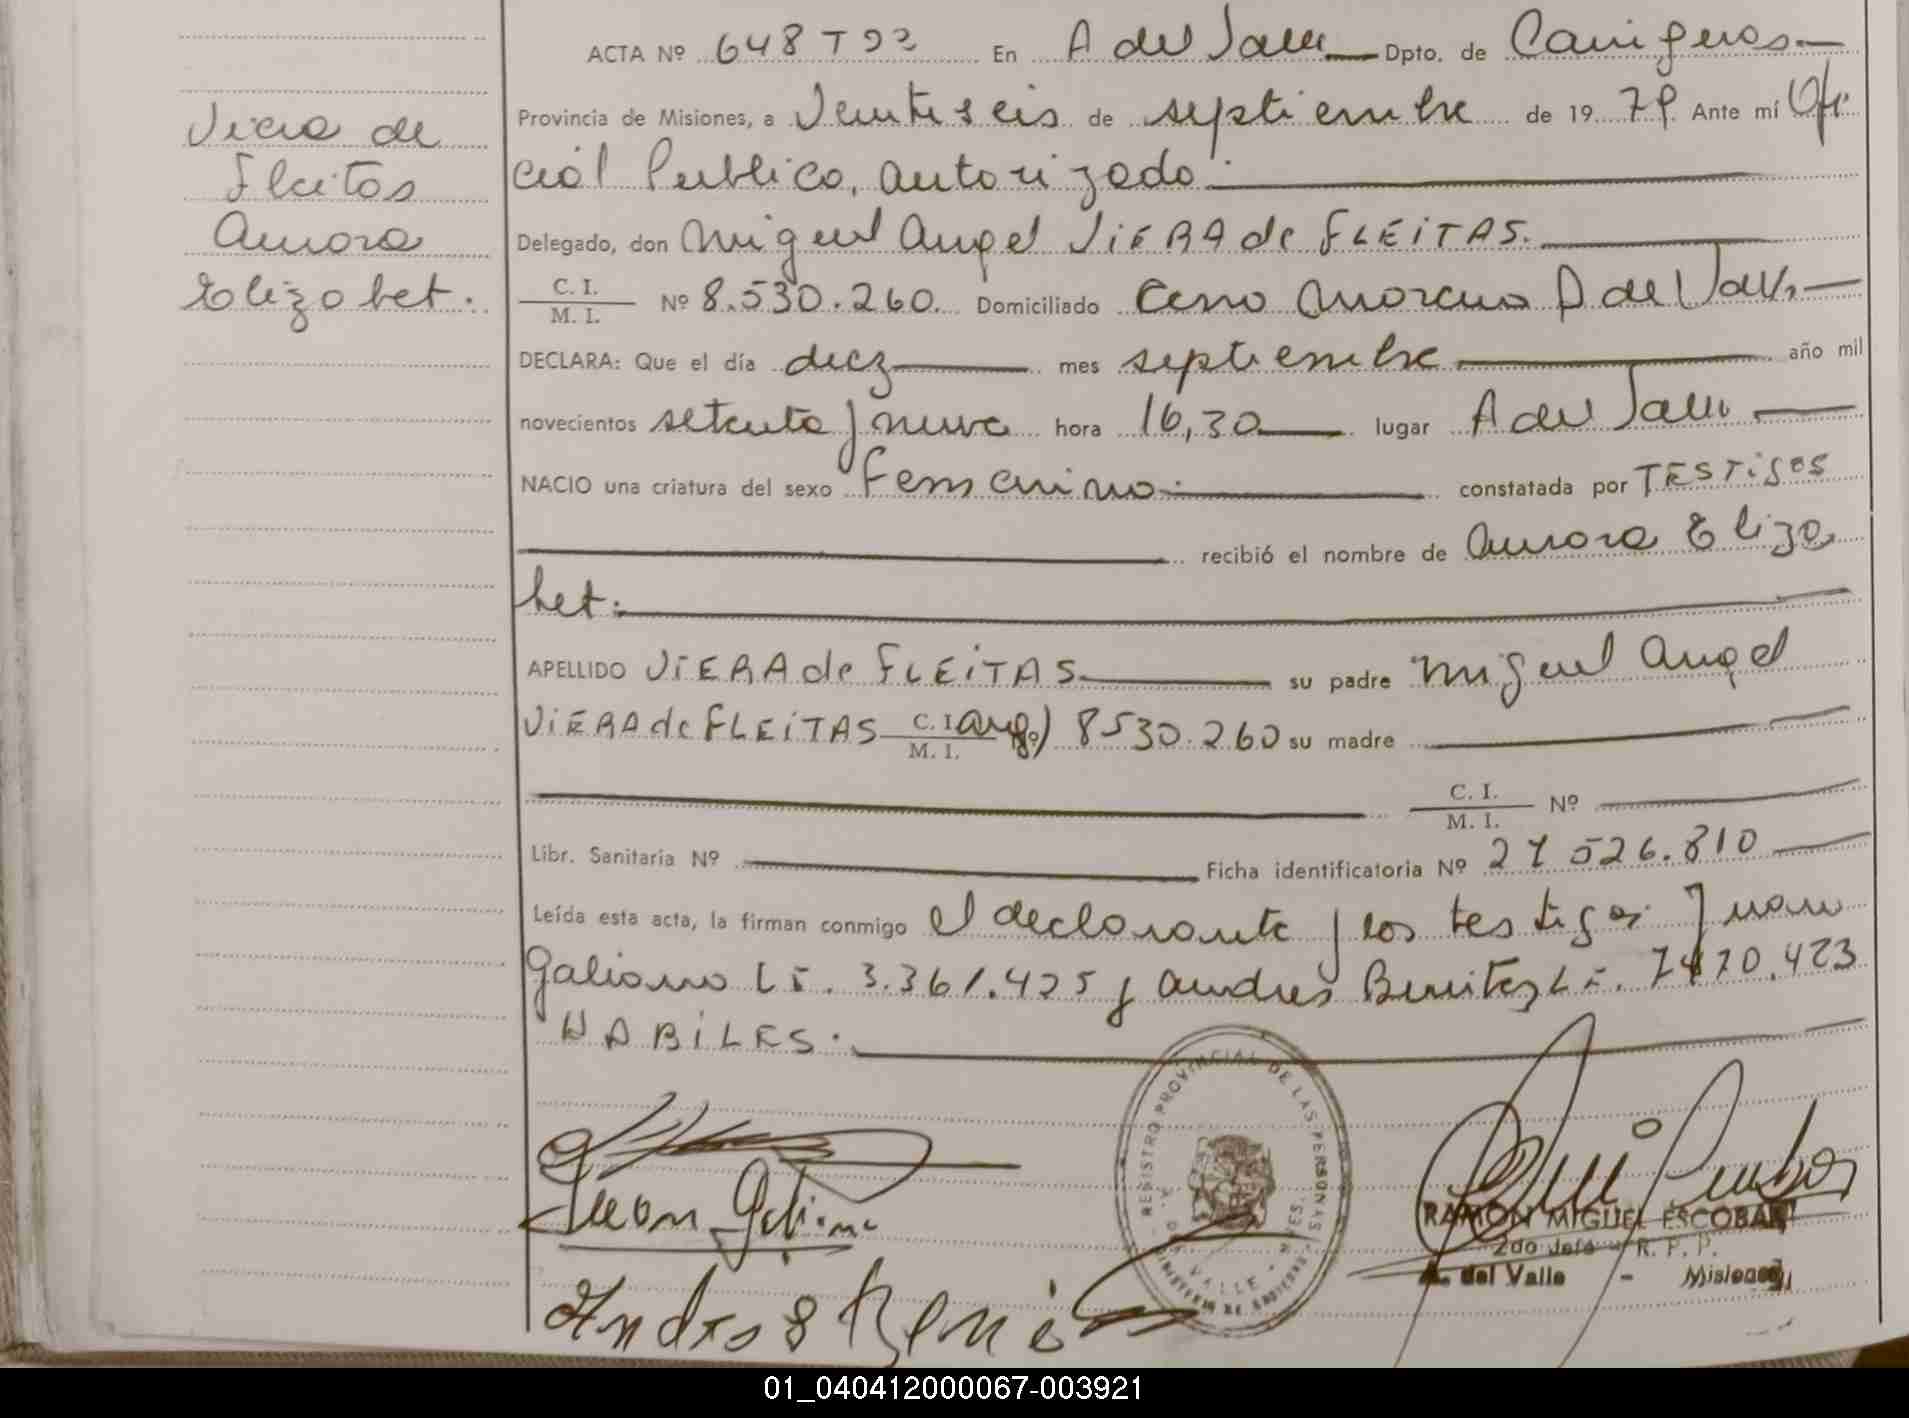 ACTA Nº 648 T 2º En A del Valle Dpto. de Cainguas
Viera de
Fleitas
Aurora
Elizabet.
Provincia de Misiones, a Veintiseis de septiembre de 1979. Ante mí Ofi
cial Publico, autorizado
Delegado, don Miguel Angel VIERA de FLEITAS.
C. I.
M. I. Nº 8.530.260. Domiciliado Cerro Moreno A del Valle
DECLARA: Que el día diez mes septiembre año mil
novecientos setenta y nueve hora 16,30 lugar A del Valle
NACIO una criatura del sexo Femenino. constatada por TESTIGOS
recibió el nombre de Aurora Eliza
bet.
APELLIDO VIERA de FLEITAS su padre Miguel Angel
VIERA de FLEITAS C. I. (arg.) 8530.260 su madre
M. I.
C. I.
M. I. Nº
Libr. Sanitaria Nº Ficha identificatoria Nº 27 526.810
Leída esta acta, la firman conmigo el declarante y los testigos Juan
Galiano LE. 3.361.425 y Andres Benitez LE. 7470.423
HABILES.
Juan Galiano
Andres Beni
REGISTRO PROVINCIAL DE LAS PERSONAS
A. DEL VALLE - MNES.
MINISTERIO DE GOBIERNO
RAMON MIGUEL ESCOBAR
2do Jefe R. P. P.
A. del Valle - Misiones
01_040412000067-003921